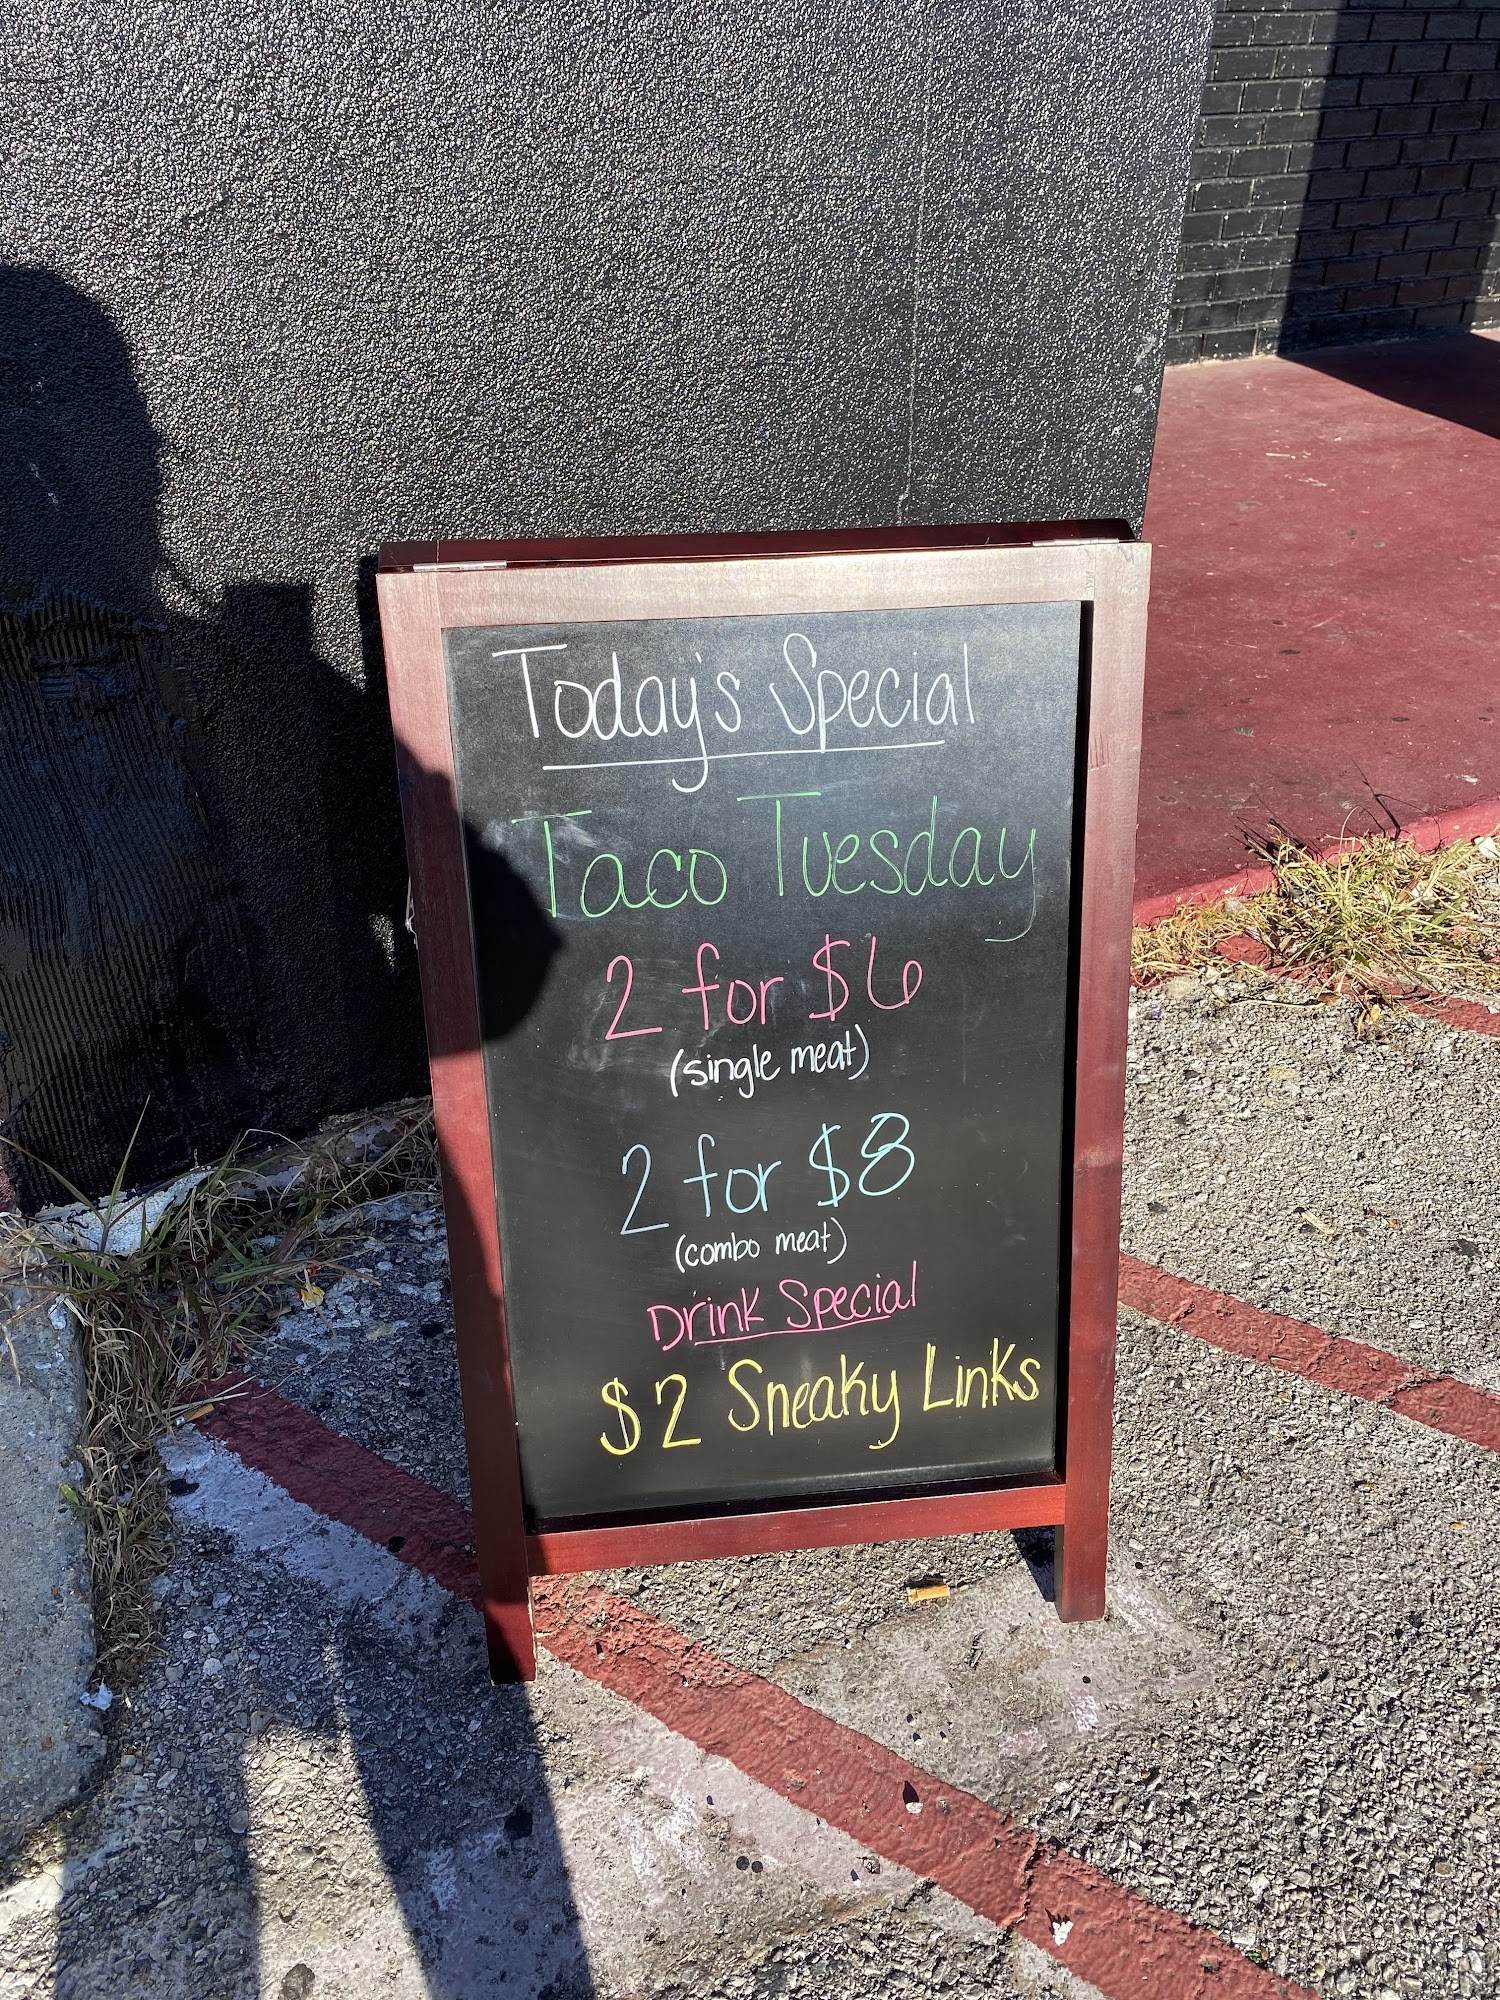 Today's Special
Taco Tuesday
2 for $6
(single meat)
2 for $8
(combo meat)
Drink Special
$2 Sneaky Links